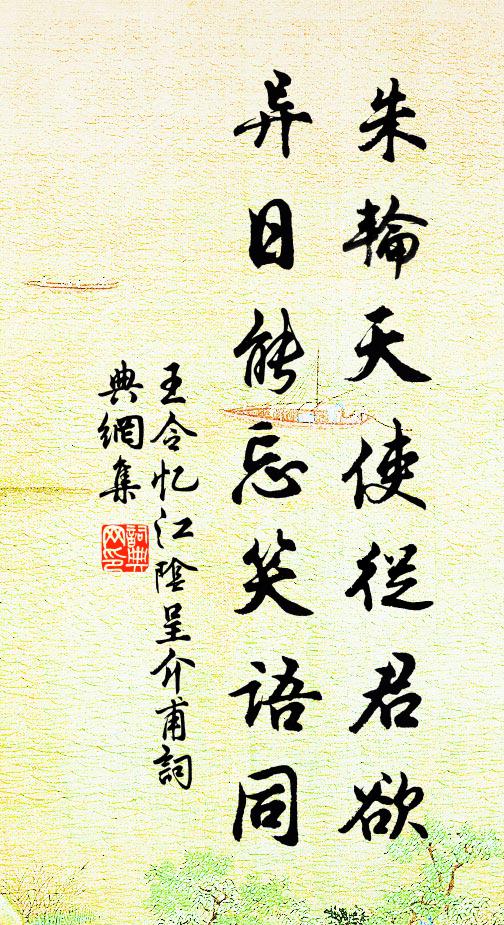 朱輪天使從君欲
异日能忘笑語同
王令忆江陰呈介甫詞
典網集
詞典
网印